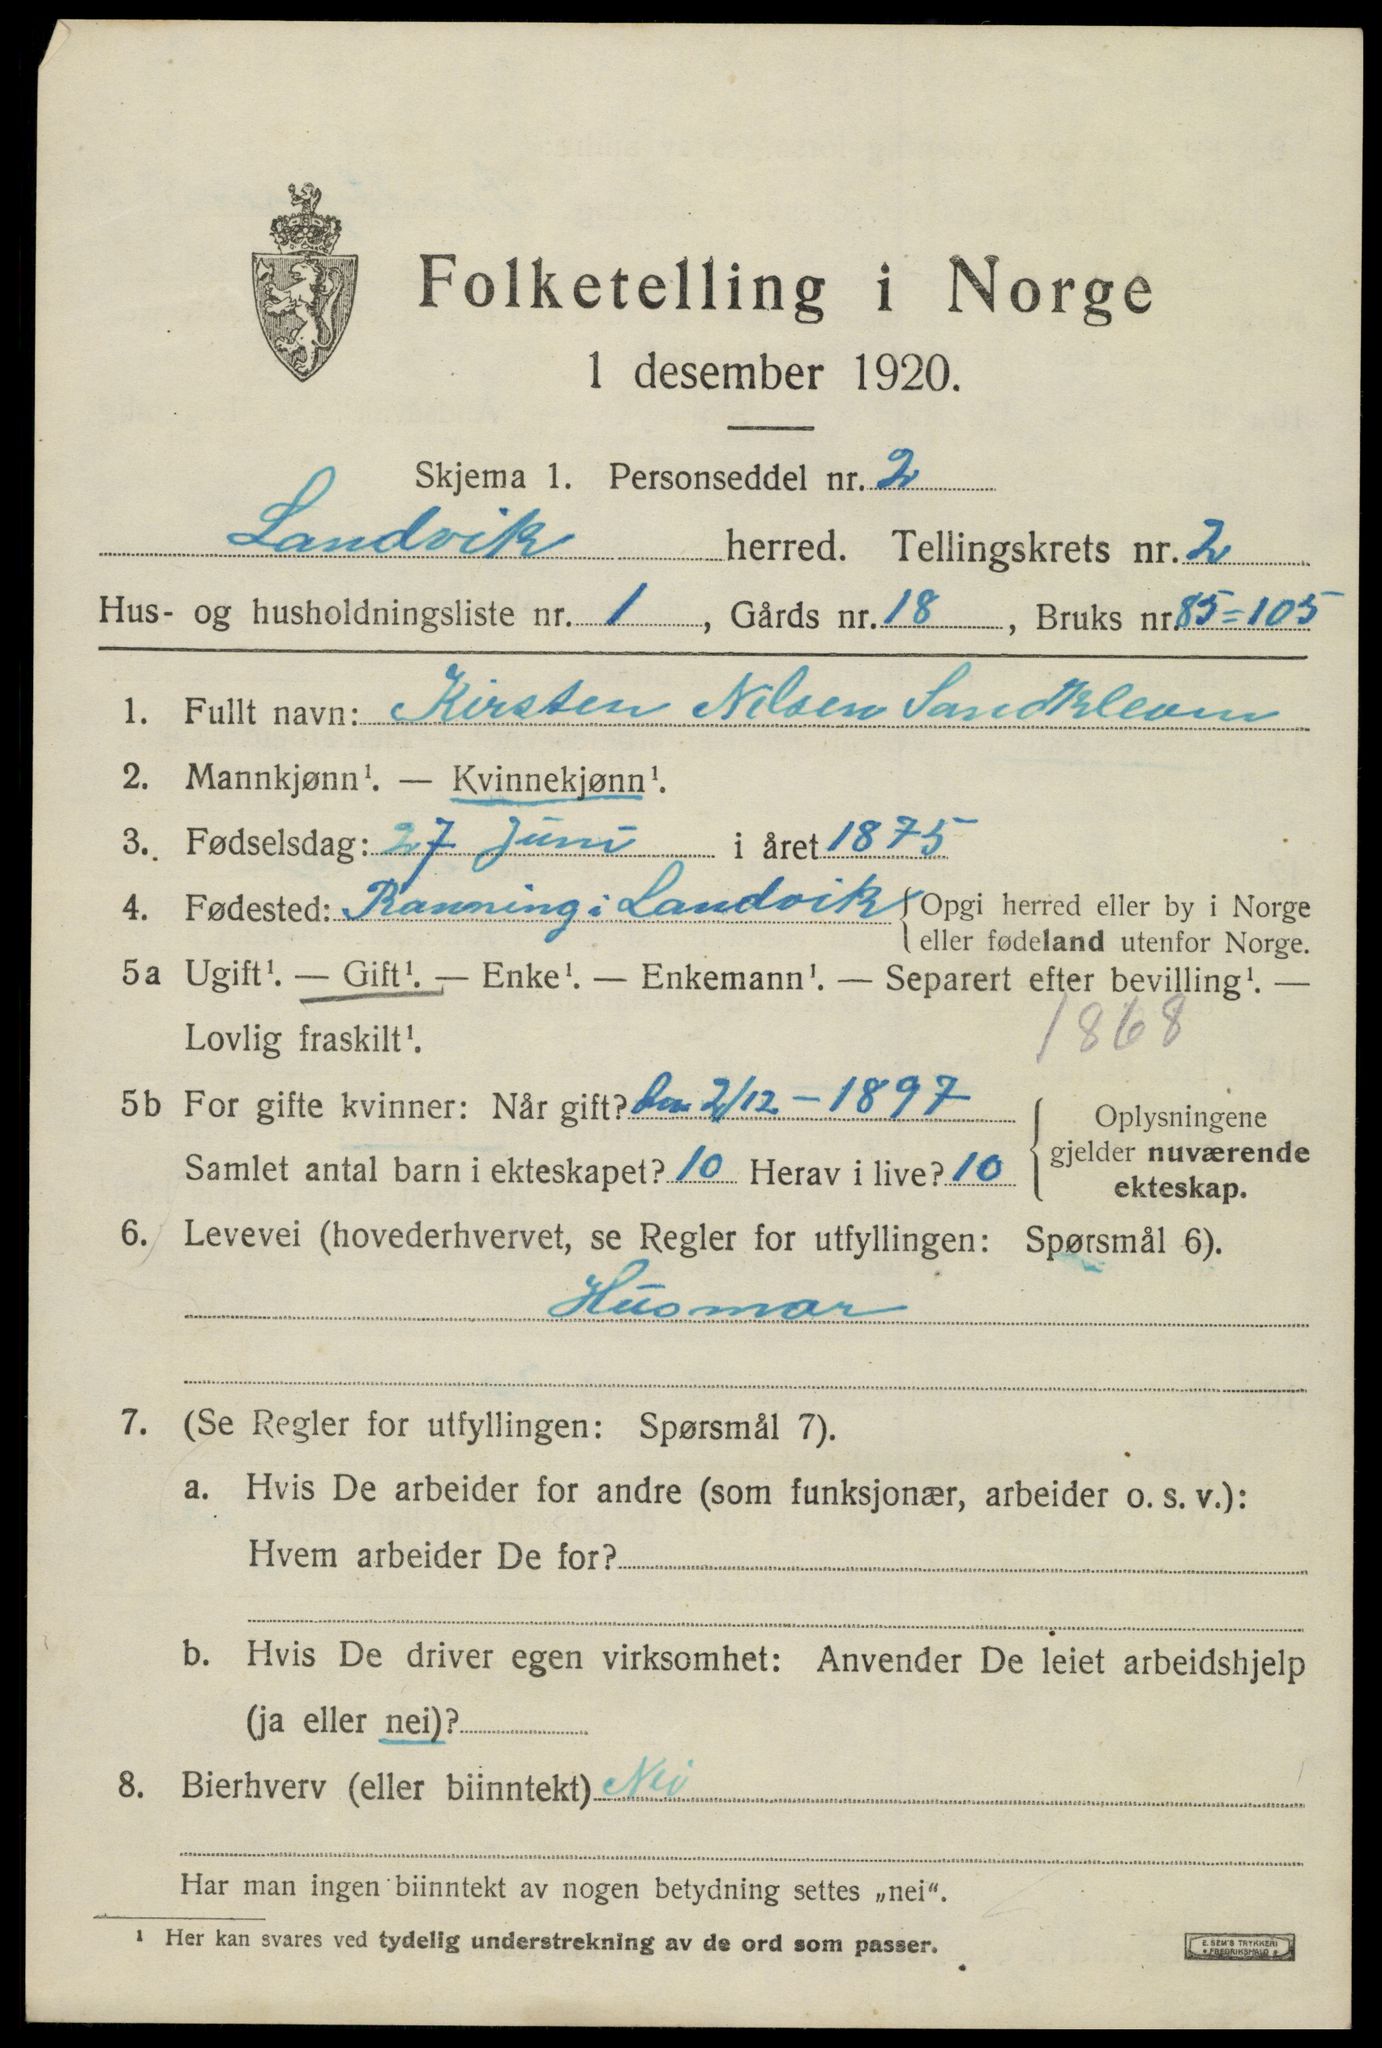 Folketelling i Norge
1 desember 1920.
Skjema 1. Personseddel nr. 2
Landvik herred. Tellingskrets nr. 2
Hus- og husholdningsliste nr. 1, Gårds nr. 18, Bruks nr. 85=105
1. Fullt navn: Kirsten Nilsen Sandkleven
2. Mannkjønn¹. — Kvinnekjønn¹.
3. Fødselsdag: 27 Juni i året 1875
4. Fødested: Rannning i Landvik { Opgi herred eller by i Norge
eller fødeland utenfor Norge.
5a Ugift¹. — Gift¹. — Enke¹. — Enkemann¹. — Separert efter bevilling¹. —
Lovlig fraskilt¹. 1868
5b For gifte kvinner: Når gift? den 2/12 - 1897 { Oplysningene
gjelder nuværende
Samlet antal barn i ekteskapet? 10 Herav i live? 10
ekteskap.
6. Levevei (hovederhvervet, se Regler for utfyllingen: Spørsmål 6).
Husmor
7. (Se Regler for utfyllingen: Spørsmål 7).
a. Hvis De arbeider for andre (som funksjonær, arbeider o. s. v.):
Hvem arbeider De for?
b. Hvis De driver egen virksomhet: Anvender De leiet arbeidshjelp
(ja eller nei)?
8. Bierhverv (eller biinntekt) Nei
Har man ingen biinntekt av nogen betydning settes „nei“.
¹ Her kan svares ved tydelig understrekning av de ord som passer.
E. SEM'S TRYKKERI
FREDRIKSHALD